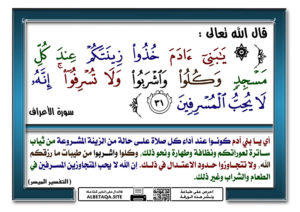 قال الله تعالى :
يَـٰبَنِىٓ ءَادَمَ خُذُوا۟ زِينَتَكُمْ عِندَ كُلِّ
مَسْجِدٍ وَكُلُوا۟ وَٱشْرَبُوا۟ وَلَا تُسْرِفُوٓا۟ ۚ إِنَّهُۥ
لَا يُحِبُّ ٱلْمُسْرِفِينَ ٣١
سورة الأعراف
أي يا بني آدم كونوا عند أداء كل صلاة على حالة من الزينة المشروعة من ثياب
ساترة لعوراتكم ونظافة وطهارة ونحو ذلك. وكلوا واشربوا من طيبات ما رزقكم
الله، ولا تتجاوزوا حدود الاعتدال في ذلك. إن الله لا يحب المتجاوزين المسرفين في
الطعام والشراب وغير ذلك.
(التفسير الميسر)
ALBETAQA.SITE